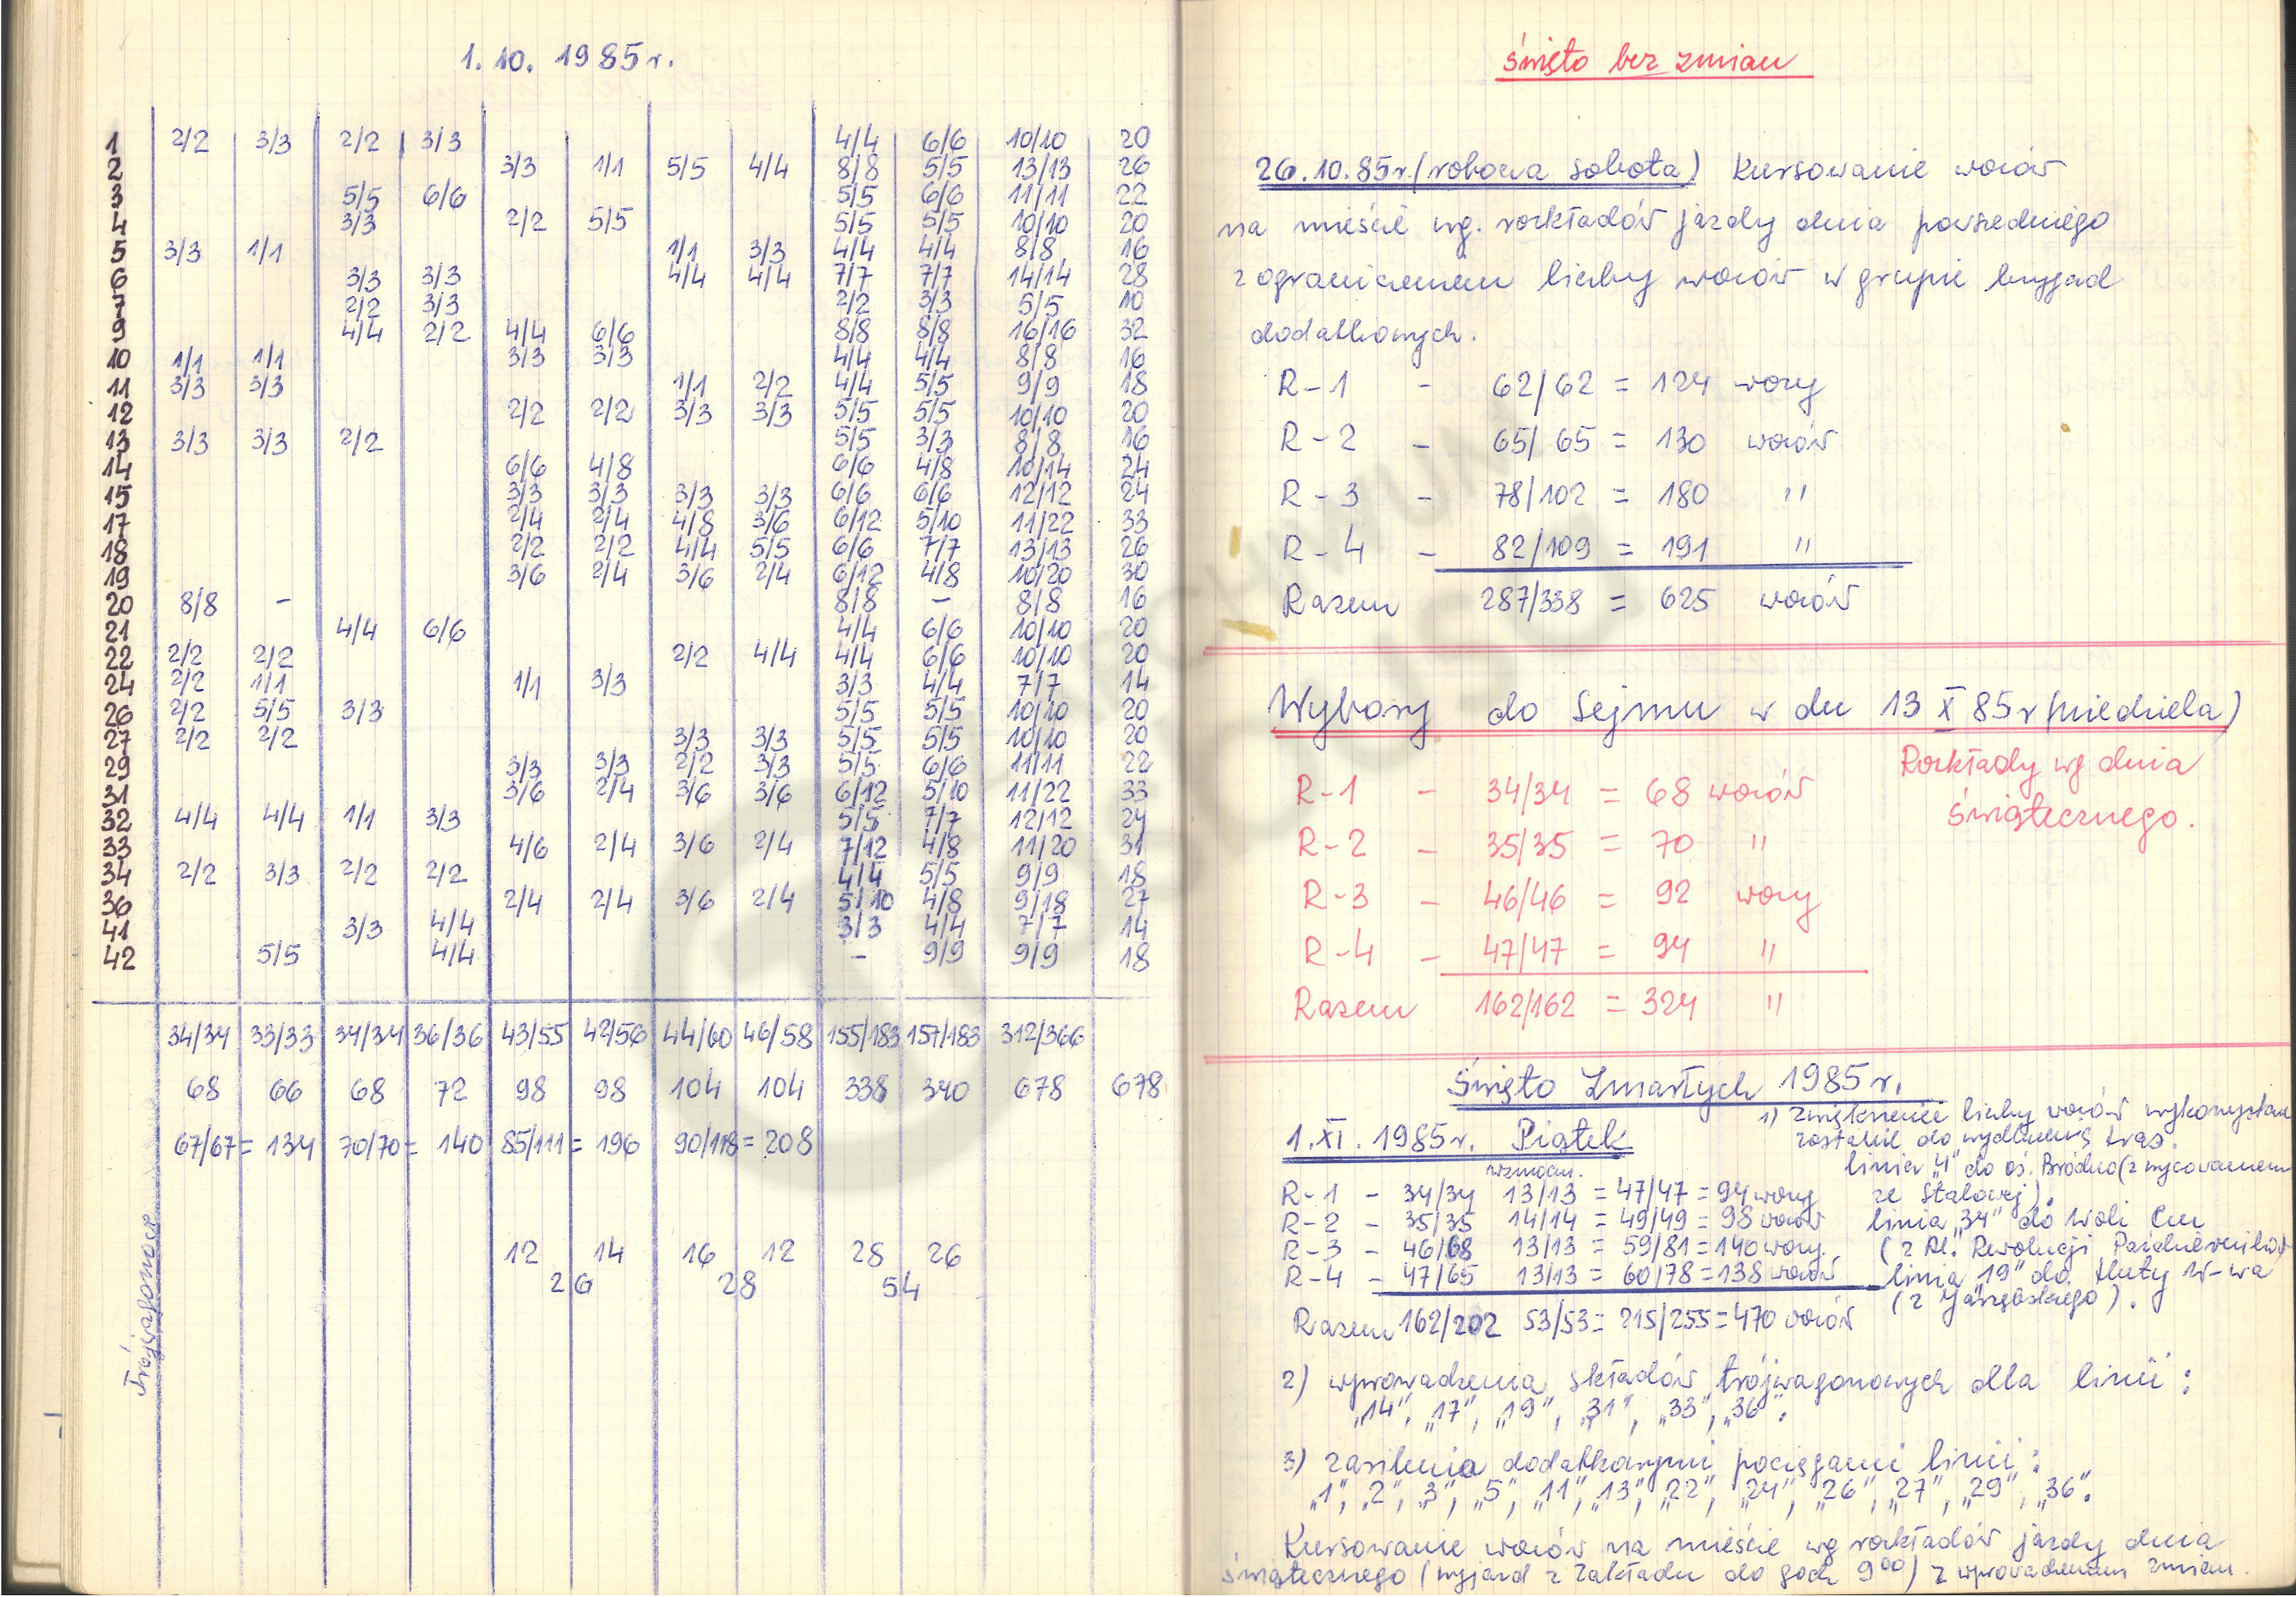 1. 10. 1985 r.
1 2/2 3/3 2/2 3/3 4/4 6/6 10/10 20
2 3/3 1/1 5/5 4/4 8/8 5/5 13/13 26
3 5/5 6/6 5/5 6/6 11/11 22
4 3/3 2/2 5/5 5/5 5/5 10/10 20
5 3/3 1/1 1/1 3/3 4/4 4/4 8/8 16
6 3/3 3/3 4/4 4/4 7/7 7/7 14/14 28
7 2/2 3/3 2/2 3/3 5/5 10
9 4/4 2/2 4/4 6/6 8/8 8/8 16/16 32
10 1/1 1/1 3/3 3/3 4/4 4/4 8/8 16
11 3/3 3/3 1/1 2/2 4/4 5/5 9/9 18
12 2/2 2/2 3/3 3/3 5/5 5/5 10/10 20
13 3/3 3/3 2/2 5/5 3/3 8/8 16
14 6/6 4/8 6/6 4/8 10/14 24
15 3/3 3/3 3/3 3/3 6/6 6/6 12/12 24
17 2/4 2/4 4/8 3/6 6/12 5/10 11/22 33
18 2/2 2/2 4/4 5/5 6/6 7/7 13/13 26
19 3/6 2/4 3/6 2/4 6/12 4/8 10/20 30
20 8/8 - 8/8 - 8/8 16
21 4/4 6/6 4/4 6/6 10/10 20
22 2/2 2/2 2/2 4/4 4/4 6/6 10/10 20
24 2/2 1/1 1/1 3/3 3/3 4/4 7/7 14
26 2/2 5/5 3/3 5/5 5/5 10/10 20
27 2/2 2/2 3/3 3/3 5/5 5/5 10/10 20
29 3/3 3/3 2/2 3/3 5/5 6/6 11/11 22
31 3/6 2/4 3/6 3/6 6/12 5/10 11/22 33
32 4/4 4/4 1/1 3/3 5/5 7/7 12/12 24
33 4/6 2/4 3/6 2/4 7/12 4/8 11/20 31
34 2/2 3/3 2/2 2/2 4/4 5/5 9/9 18
36 2/4 2/4 3/6 2/4 5/10 4/8 9/18 27
41 3/3 4/4 3/3 4/4 7/7 14
42 5/5 4/4 - 9/9 9/9 18
34/34 33/33 34/34 36/36 43/55 42/56 44/60 46/58 155/183 157/183 312/366
68 66 68 72 98 98 104 104 338 340 678 678
67/67 = 134 70/70 = 140 85/111 = 196 90/118 = 208
Trójwagonowe
12 14 16 12 28 26
26 28 54
święto bez zmian
26.10.85r. (robocza sobota) Kursowanie wozów
na mieście wg. rozkładów jazdy dnia powszedniego
z ograniczeniem liczby wozów w grupie brygad
dodatkowych.
R-1 - 62/62 = 124 wozy
R-2 - 65/65 = 130 wozów
R-3 - 78/102 = 180 "
R-4 - 82/109 = 191 "
Razem 287/338 = 625 wozów
Wybory do Sejmu w dn 13 X 85r (niedziela)
Rozkłady wg dnia
świątecznego.
R-1 - 34/34 = 68 wozów
R-2 - 35/35 = 70 "
R-3 - 46/46 = 92 wozy
R-4 - 47/47 = 94 "
Razem 162/162 = 324 "
Święto Zmarłych 1985 r.
1. XI. 1985 r. Piątek
1) zwiększenie liczby wozów wykorzystane
zostanie do wydłużenia tras.
linia „4" do oś. Bródno (z wycofaniem
ze Stalowej).
linia „34" do Woli Cm
linia „19" do Huty W-wa
wzmocn.
R-1 - 34/34 13/13 = 47/47 = 94 wozy
R-2 - 35/35 14/14 = 49/49 = 98 wozów
R-3 - 46/68 13/13 = 59/81 = 140 wozy
R-4 - 47/65 13/13 = 60/78 = 138 wozów
Razem 162/202 53/53 = 215/255 = 470 wozów
2) wprowadzenia składów trójwagonowych dla linii:
„14", „17", „19", „31", „33", „36".
3) zasilenia dodatkowymi pociągami linii:
„1", „2", „3", „5", „11", „13", „22", „24", „26", „27", „29", „36".
Kursowanie wozów na mieście wg rozkładów jazdy dnia
świątecznego (wyjazd z Zakładu do godz 9⁰⁰) z wprowadzeniem zmian.